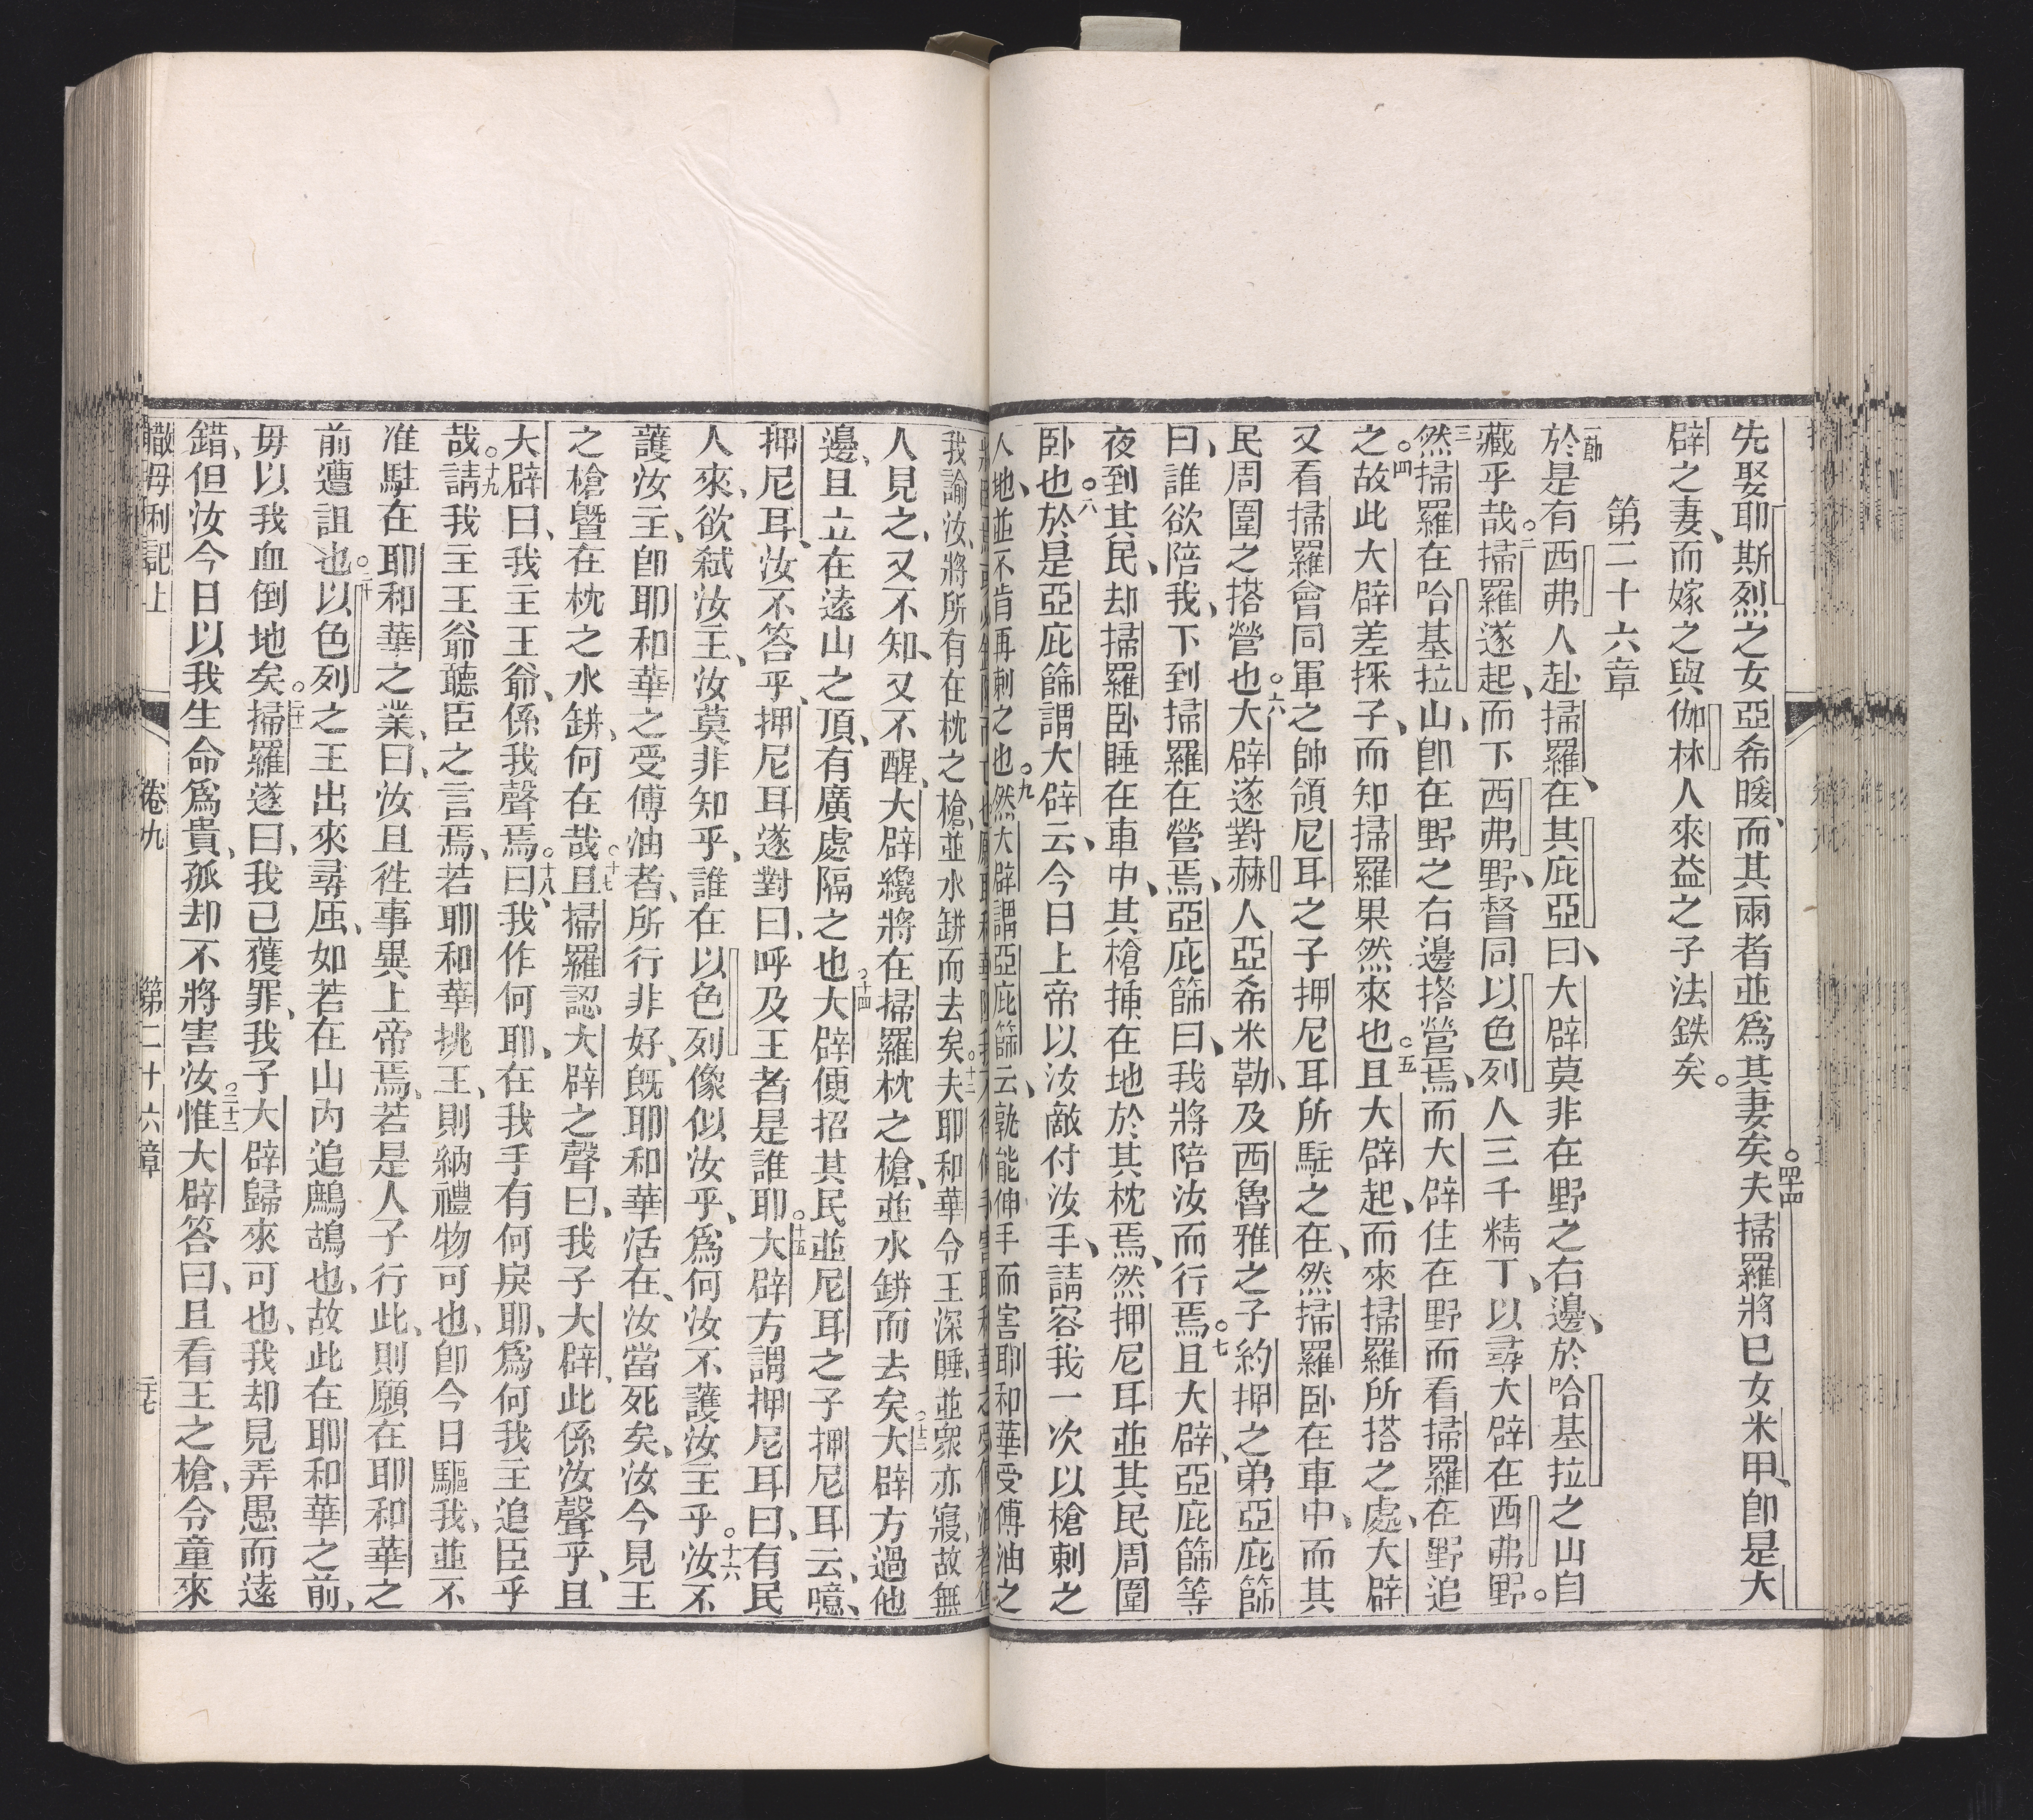 先娶耶斯烈之女亞希暖、而其兩者並爲其妻矣。四十四夫掃羅將巳女米甲、卽是大
辟之妻、而嫁之與伽林人來益之子法鉄矣。
第二十六章
一節於是有西弗人赴掃羅、在其庇亞、曰、大辟莫非在野之右邊、於哈基拉之山自
藏乎哉。○二掃羅遂起、而下西弗野、督同以色列人三千精丁、以尋大辟在西弗野。
三然掃羅在哈基拉山、卽在野之右邊撘營焉、而大辟住在野而看掃羅在野追
之。○四故此大辟差探子、而知掃羅果然來也。○五且大辟起、而來掃羅所搭之處、大辟
又看掃羅會同軍之帥領尼耳之子押尼耳所駐之在、然掃羅卧在車中、而其
民周圍之搭營也。○六大辟遂對赫人亞希米勒、及西魯雅之子約押之弟亞庇篩
曰、誰欲陪我、下到掃羅在營焉、亞庇篩曰、我將陪汝而行焉。○七且大辟、亞庇篩等
夜到其民、却掃羅卧睡在車中、其槍挿在地於其枕焉、然押尼耳並其民周圍
卧也。○八於是亞庇篩謂大辟云、今日上帝以汝敵付汝手、請容我一次以槍刺之
人地、並不肯再刺之也。○九然大辟謂亞庇篩云、孰能伸手而害耶和華受傅油之
我諭汝、將所有在枕之槍、並水缾而去矣。○十二夫耶和華令王深睡、並衆亦寢、故無
人見之、又不知、又不醒、大辟纔將在掃羅枕之槍、並水缾而去矣。○十三大辟方過他
邊、且立在遠山之頂、有廣處隔之也。○十四大辟便招其民並尼耳之子押尼耳云、噫、
押尼耳、汝不答乎、押尼耳遂對曰、呼及王者是誰耶。○十五大辟方謂押尼耳曰、有民
人來、欲弒汝主、汝莫非知乎、誰在以色列像似汝乎、爲何汝不護汝主乎。○十六汝不
護汝主、卽耶和華之受傅油者、所行非好、旣耶和華活在、汝當死矣、汝今見王
之槍曁在枕之水缾、何在哉。○十七且掃羅認大辟之聲曰、我子大辟、此係汝聲乎、且
大辟曰、我主王爺、係我聲焉。○十八曰、我作何耶、在我手有何戾耶、爲何我主追臣乎
哉。○十九請我主王爺聽臣之言焉、若耶和華挑王、則納禮物可也、卽今日驅我、並不
准駐在耶和華之業、曰、汝且徃事異上帝焉、若是人子行此、則願在耶和華之
前遭詛也。○二十以色列之王出來尋虱、如若在山內追鷓鴣也、故此在耶和華之前、
毋以我血倒地矣。○二十一掃羅遂曰、我已獲罪、我子大辟歸來可也、我却見弄愚而遠
錯、但汝今日以我生命爲貴、孤却不將害汝。○二十二惟大辟答曰、且看王之槍、令童來
撒母利記上　卷九　第二十六章　二十七